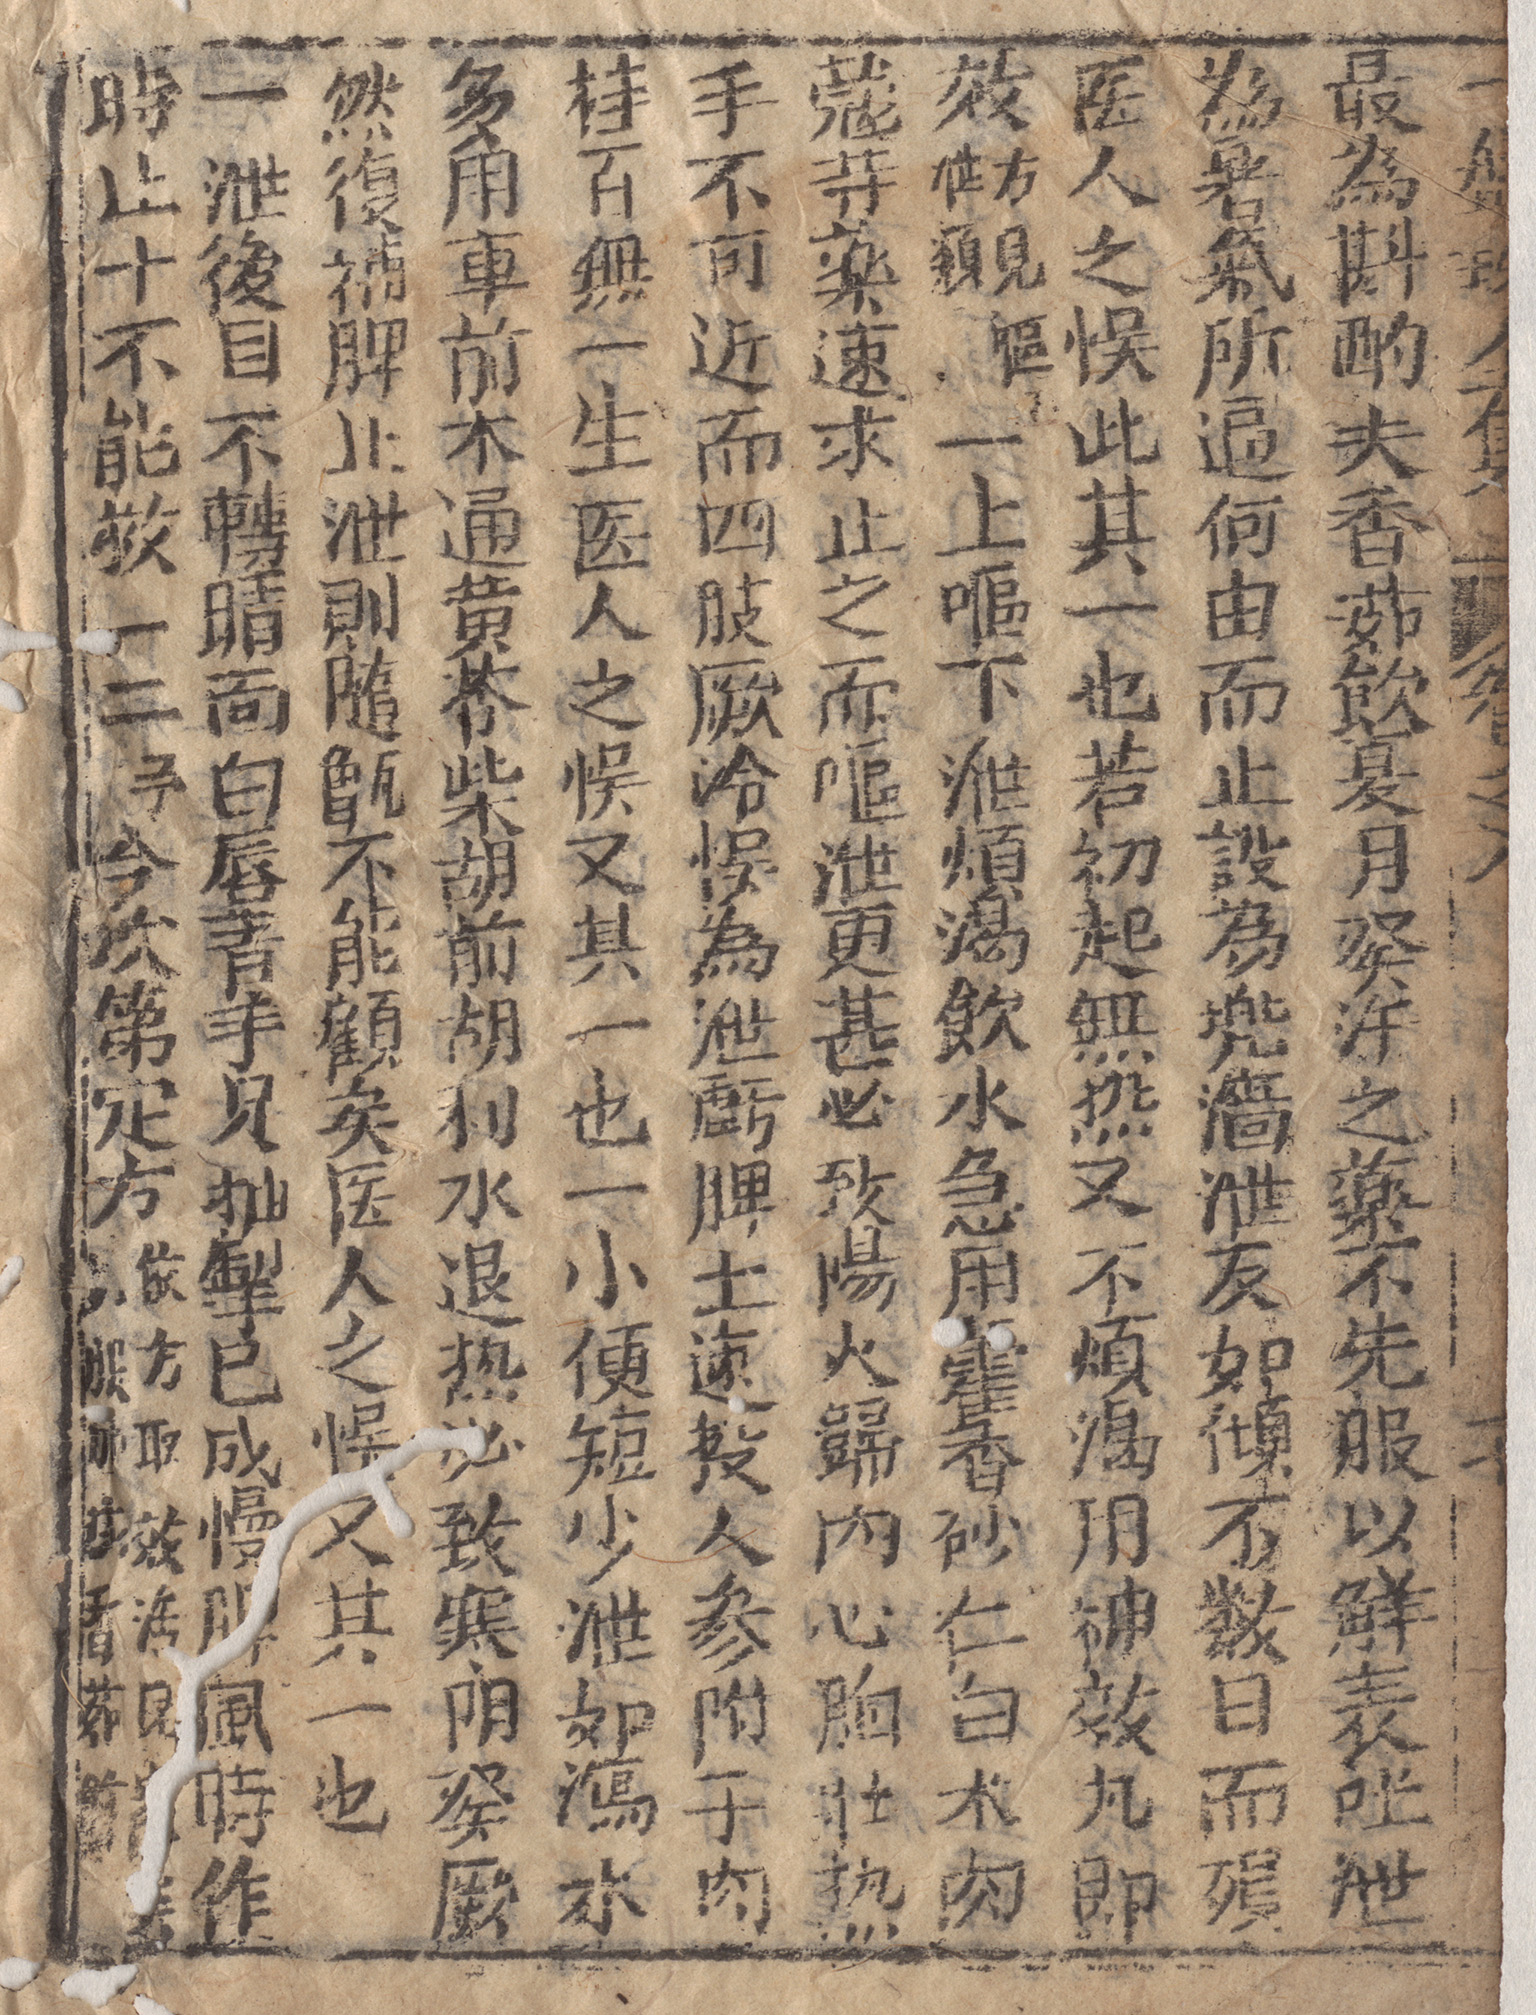 最為斟酌夫香茹飲夏月發汗之藥不先服以解表吐泄
為暑氣所逼何由而止設為兜濇泄反如傾不数日而殞
医人之悮此其一也若初起無熱又不煩渴用神效丸即
效方見嘔
性類
一上嘔下泄煩渴飲水急用藿香砂仁白朮肉
蔻荳藥速求止之而嘔泄更甚必致陽火歸内心胸壯熱
手不可近而四肢厥冷悮為泄虧脾土速投人參附子肉
桂百無一生医人之悮又其一也一小便短少泄如瀉水
多用車前木通黄芩柴胡前胡利水退熱必致寒閉發厥
然復補脾止泄則隨甑不能顧矣医人之悮又其一也
一泄後目不轉睛面白唇青手足抽掣已成慢脾風時作
時止十不能救一二予今次第定方依方取效活
服香茹